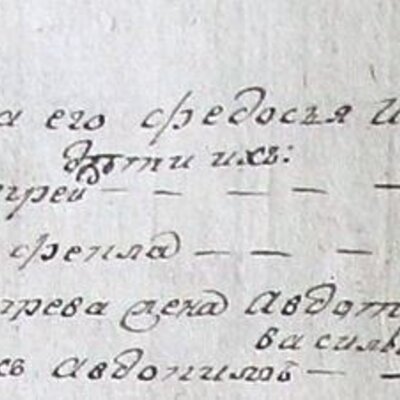 а его федосья И
дѣти ихъ:
грей — — — —
фекла — — —
грева жена Авдот
васил
въ авдокимовъ — —